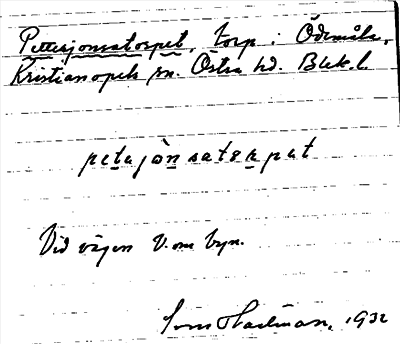 Pettersjonsatorpet, torp i Ödemåla,
Kristianopels sn. Östra hd. Blek. l.
petajònsatərpət
Vid vägen V. om byn.
Hartman, 1932